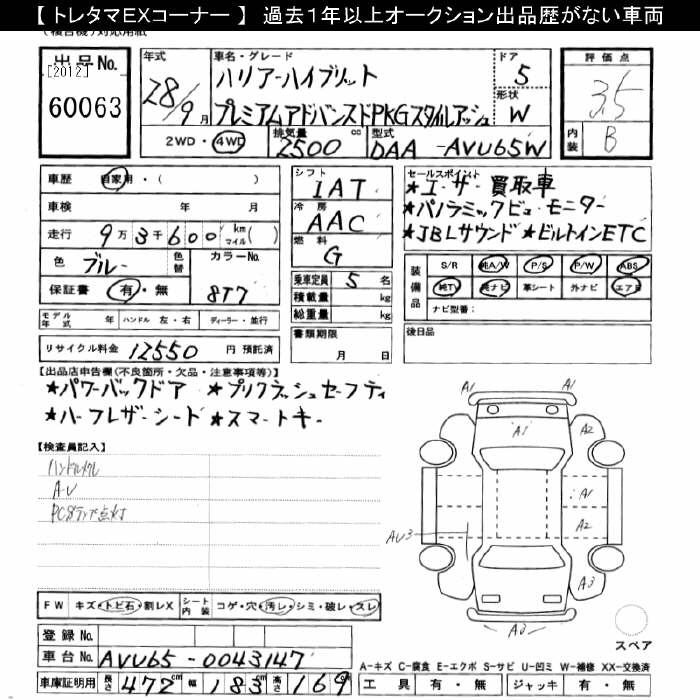 【 トレタマEXコーナー 】 過去1年以上オークション出品歴がない車両
出品No.
[2012]
60063
年式
28/9月
車名・グレード
ハリアーハイブリット
プレミアムアドバンスドPKGスタイルアッシュ
ドア
5
形状
W
2WD・4WD
排気量
2500 cc
型式
DAA-AVU65W
評価点
3.5
内装
B
車歴 自家用・( )
車検 年 月
走行 9万3千600 km マイル( )
色 ブルー
色替
カラーNo.
8T7
保証書 有・無
モデル年式 年 ハンドル 左・右 ディーラー・並行
リサイクル料金 12550 円 預託済
シフト
IAT
冷房
AAC
燃料
G
乗車定員 5 名
積載量 kg
総重量 kg
書類期限
月 日
セールスポイント
★ユーザー買取車
★パノラミックビューモニター
★JBLサウンド ★ビルトインETC
装備品
S/R 純A/W P/S P/W ABS
純TV 純ナビ 革シート 外ナビ エアB
ナビ型番:
後日品
【出品店申告欄(不良箇所・欠品・注意事項等)】
★パワーバックドア ★プリクラッシュセーフティ
★ハーフレザーシート ★スマートキー
【検査員記入】
ハンドルスレ
A・U
PCSランプ点灯
A1 A1
A1 A2
A1
A2
AU3
A3
A3
スペア
FW キズ・トビ石・割レX
シート内装 コゲ・穴・汚レ・シミ・破レ・スレ
登録No.
車台No. AVU65-0043147
車庫証明用 長さ 472 cm 幅 183 cm 高さ 169 cm
A-キズ C-腐食 E-エクボ S-サビ U-凹ミ W-補修 XX-交換済
工具 有・無 ジャッキ 有・無